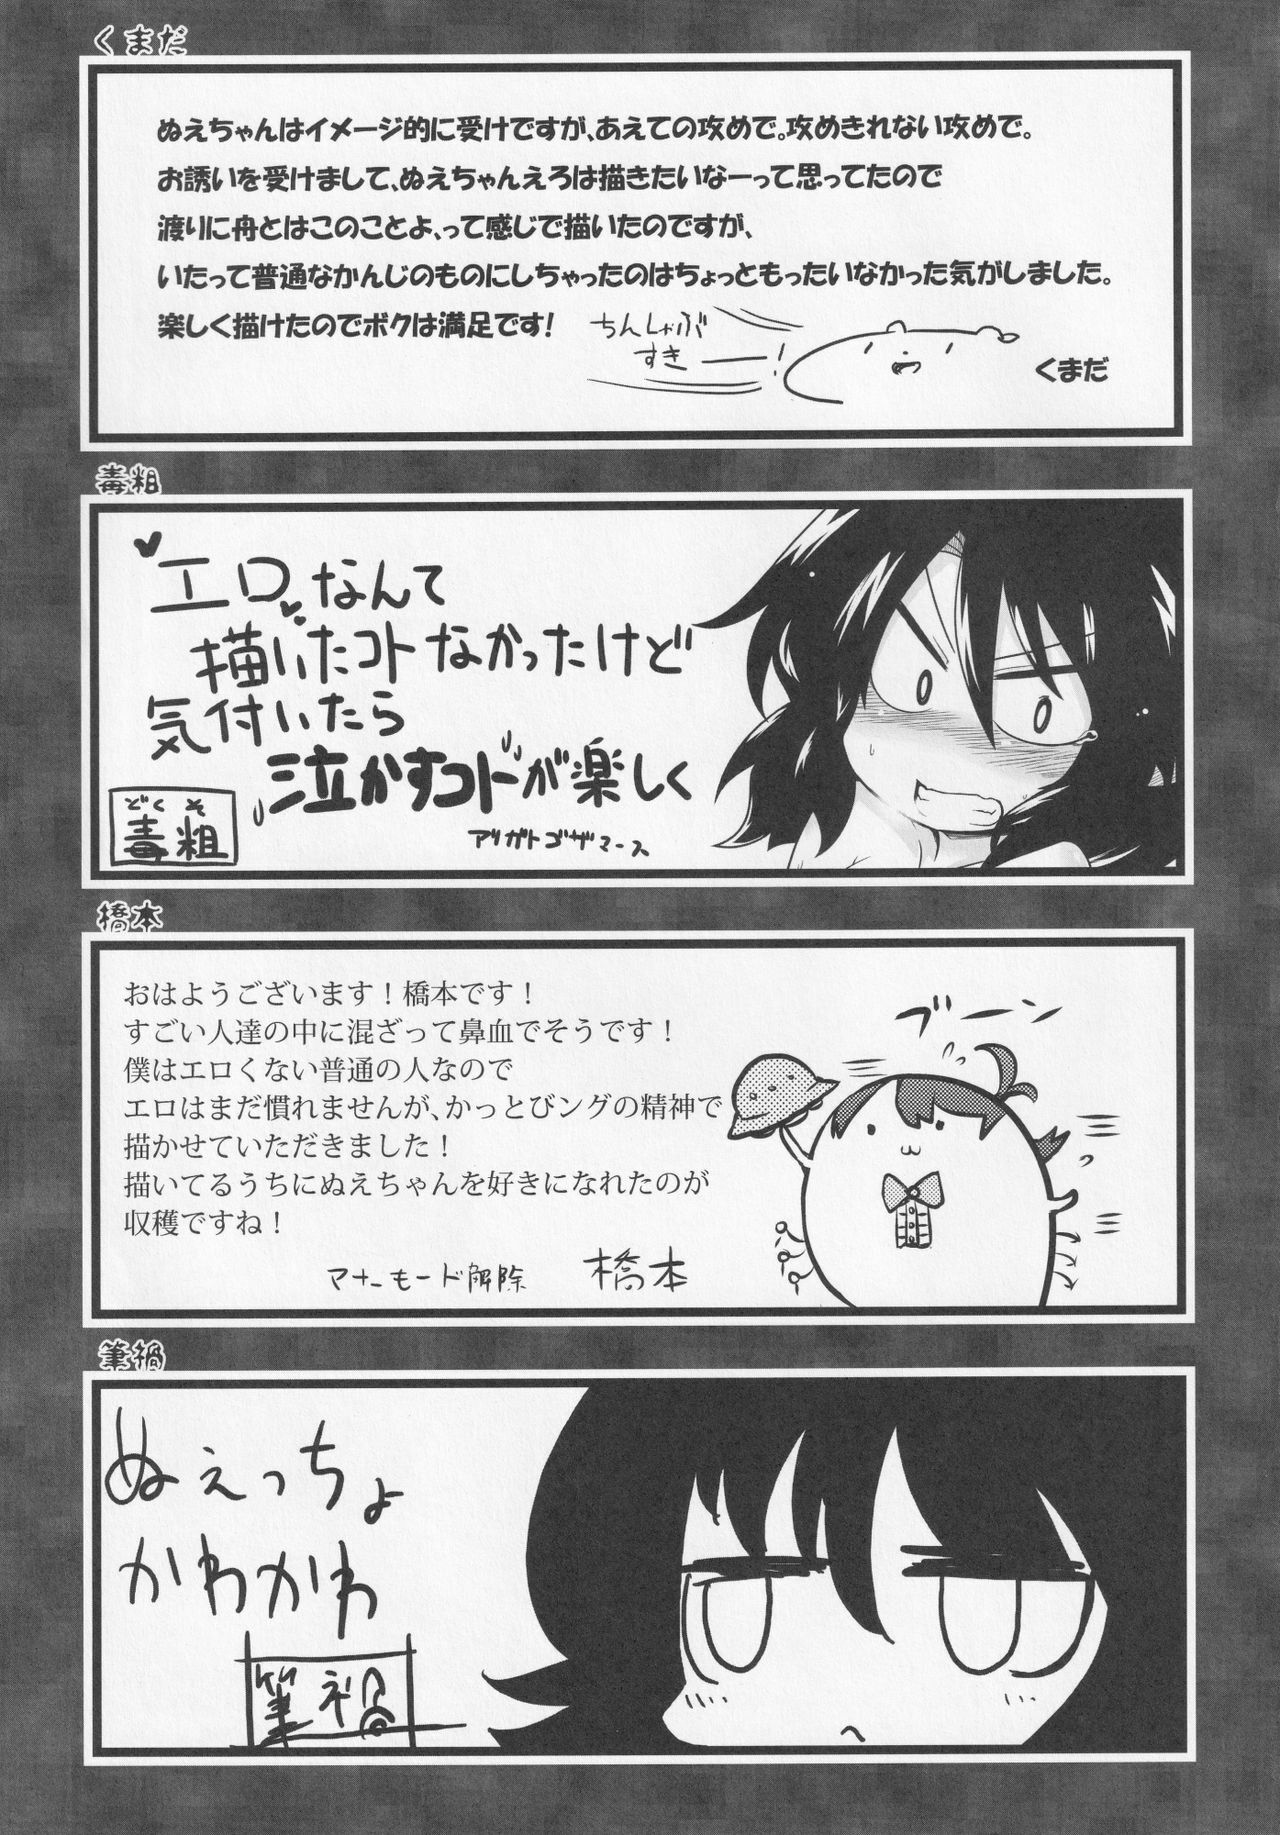 くまだ
ぬえちゃんはイメージ的に受けですが、あえての攻めで。攻めきれない攻めで。
お誘いを受けまして、ぬえちゃんえろは描きたいなーって思ってたので
渡りに舟とはこのことよ、って感じで描いたのですが、
いたって普通なかんじのものにしちゃったのはちょっともったいなかった気がしました。
楽しく描けたのでボクは満足です!
ちんしゃぶ
すき――!
くまだ
毒粗
エロなんて
描いたコトなかったけど
気付いたら
泣かすコトが楽しく
アリガトゴザマース
どくそ
毒粗
橋本
おはようございます!橋本です!
すごい人達の中に混ざって鼻血でそうです!
僕はエロくない普通の人なので
エロはまだ慣れませんが、かっとビングの精神で
描かせていただきました!
描いてるうちにぬえちゃんを好きになれたのが
収穫ですね!
マナーモード解除 橋本
ブーン
筆禍
ぬえっちょ
かわかわ
筆禍